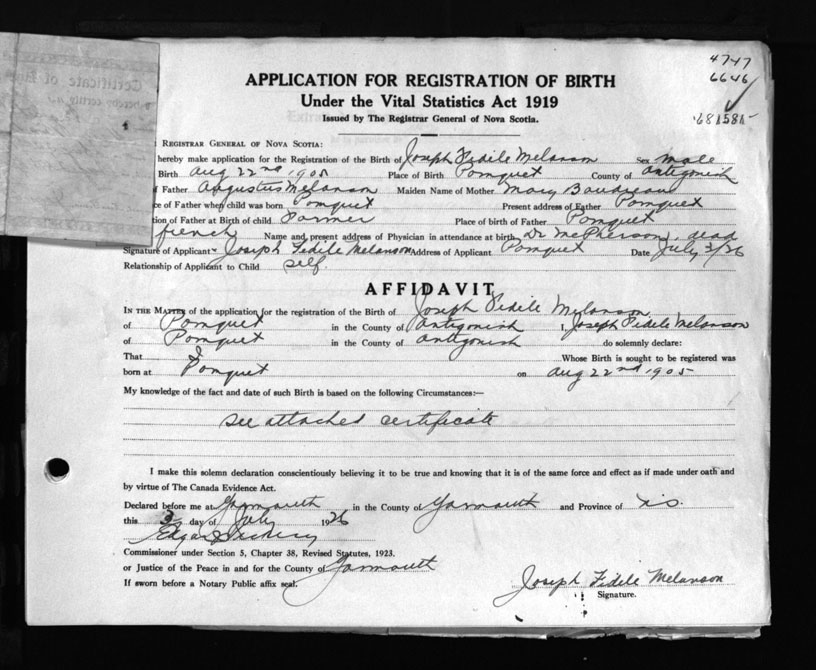 Certificate of
hereby certify
4747
6646
681585
APPLICATION FOR REGISTRATION OF BIRTH
Under the Vital Statistics Act 1919
Issued by The Registrar General of Nova Scotia.
REGISTRAR GENERAL OF NOVA SCOTIA:
hereby make application for the Registration of the Birth of Joseph Fidile Melanson Sex male
Birth Aug 22nd 1905 Place of Birth Pomquet County of Antigonish
Father Augustus Melanson Maiden Name of Mother Mary Boudreau
ce of Father when child was born Pomquet Present address of Father Pomquet
tion of Father at Birth of child Farmer Place of birth of Father Pomquet
french Name and present address of Physician in attendance at birth Dr McPherson, dead
Signature of Applicant Joseph Fidile Melanson Address of Applicant Pomquet Date July 3/26
Relationship of Applicant to Child self
AFFIDAVIT
IN THE MATTER of the application for the registration of the Birth of Joseph Fidile Melanson
of Pomquet in the County of Antigonish I, Joseph Fidile Melanson
of Pomquet in the County of Antigonish do solemnly declare:
That I Whose Birth is sought to be registered was
born at Pomquet on Aug 22nd 1905
My knowledge of the fact and date of such Birth is based on the following Circumstances:—
see attached certificate
I make this solemn declaration conscientiously believing it to be true and knowing that it is of the same force and effect as if made under oath and
by virtue of The Canada Evidence Act.
Declared before me at Yarmouth in the County of Yarmouth and Province of N.S.
this 3 day of July 1926
Edgar
Commissioner under Section 5, Chapter 38, Revised Statutes, 1923.
or Justice of the Peace in and for the County of Yarmouth
If sworn before a Notary Public affix seal.
Joseph Fidile Melanson
Signature.